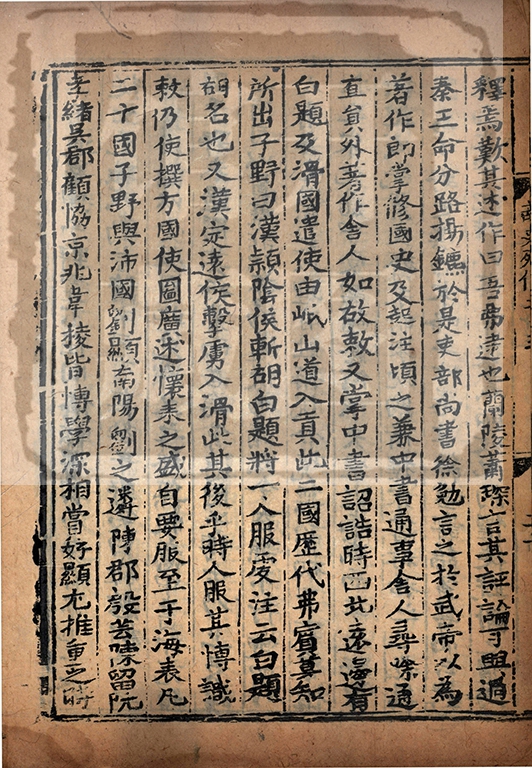 釋焉歎其述作曰吾弗逮也蘭陵蕭琛言其評論可與過
秦王命分路揚鑣於是吏部尚書徐勉言之於武帝以為
著作郎掌修國史及起注頃之兼中書通事舍人尋除通
直負外著作舍人如故敕又掌中書詔誥時西北遠邊有
白題及滑國遣使由岷山道入貢此二國歷代弗賓莫知
所出子野曰漢潁陰侯斬胡白題將一人服虔注云白題
胡名也又漢定遠侯擊虜入滑此其後乎時人服其博識
敕仍使撰方國使圖廣述懷來之盛自要服至于海表凡
二十國子野與沛國劉顯南陽劉之遴陳郡殷芸陳留阮
孝緒吳郡顧協京兆韋稜皆博學深相賞好顯尤推重之時